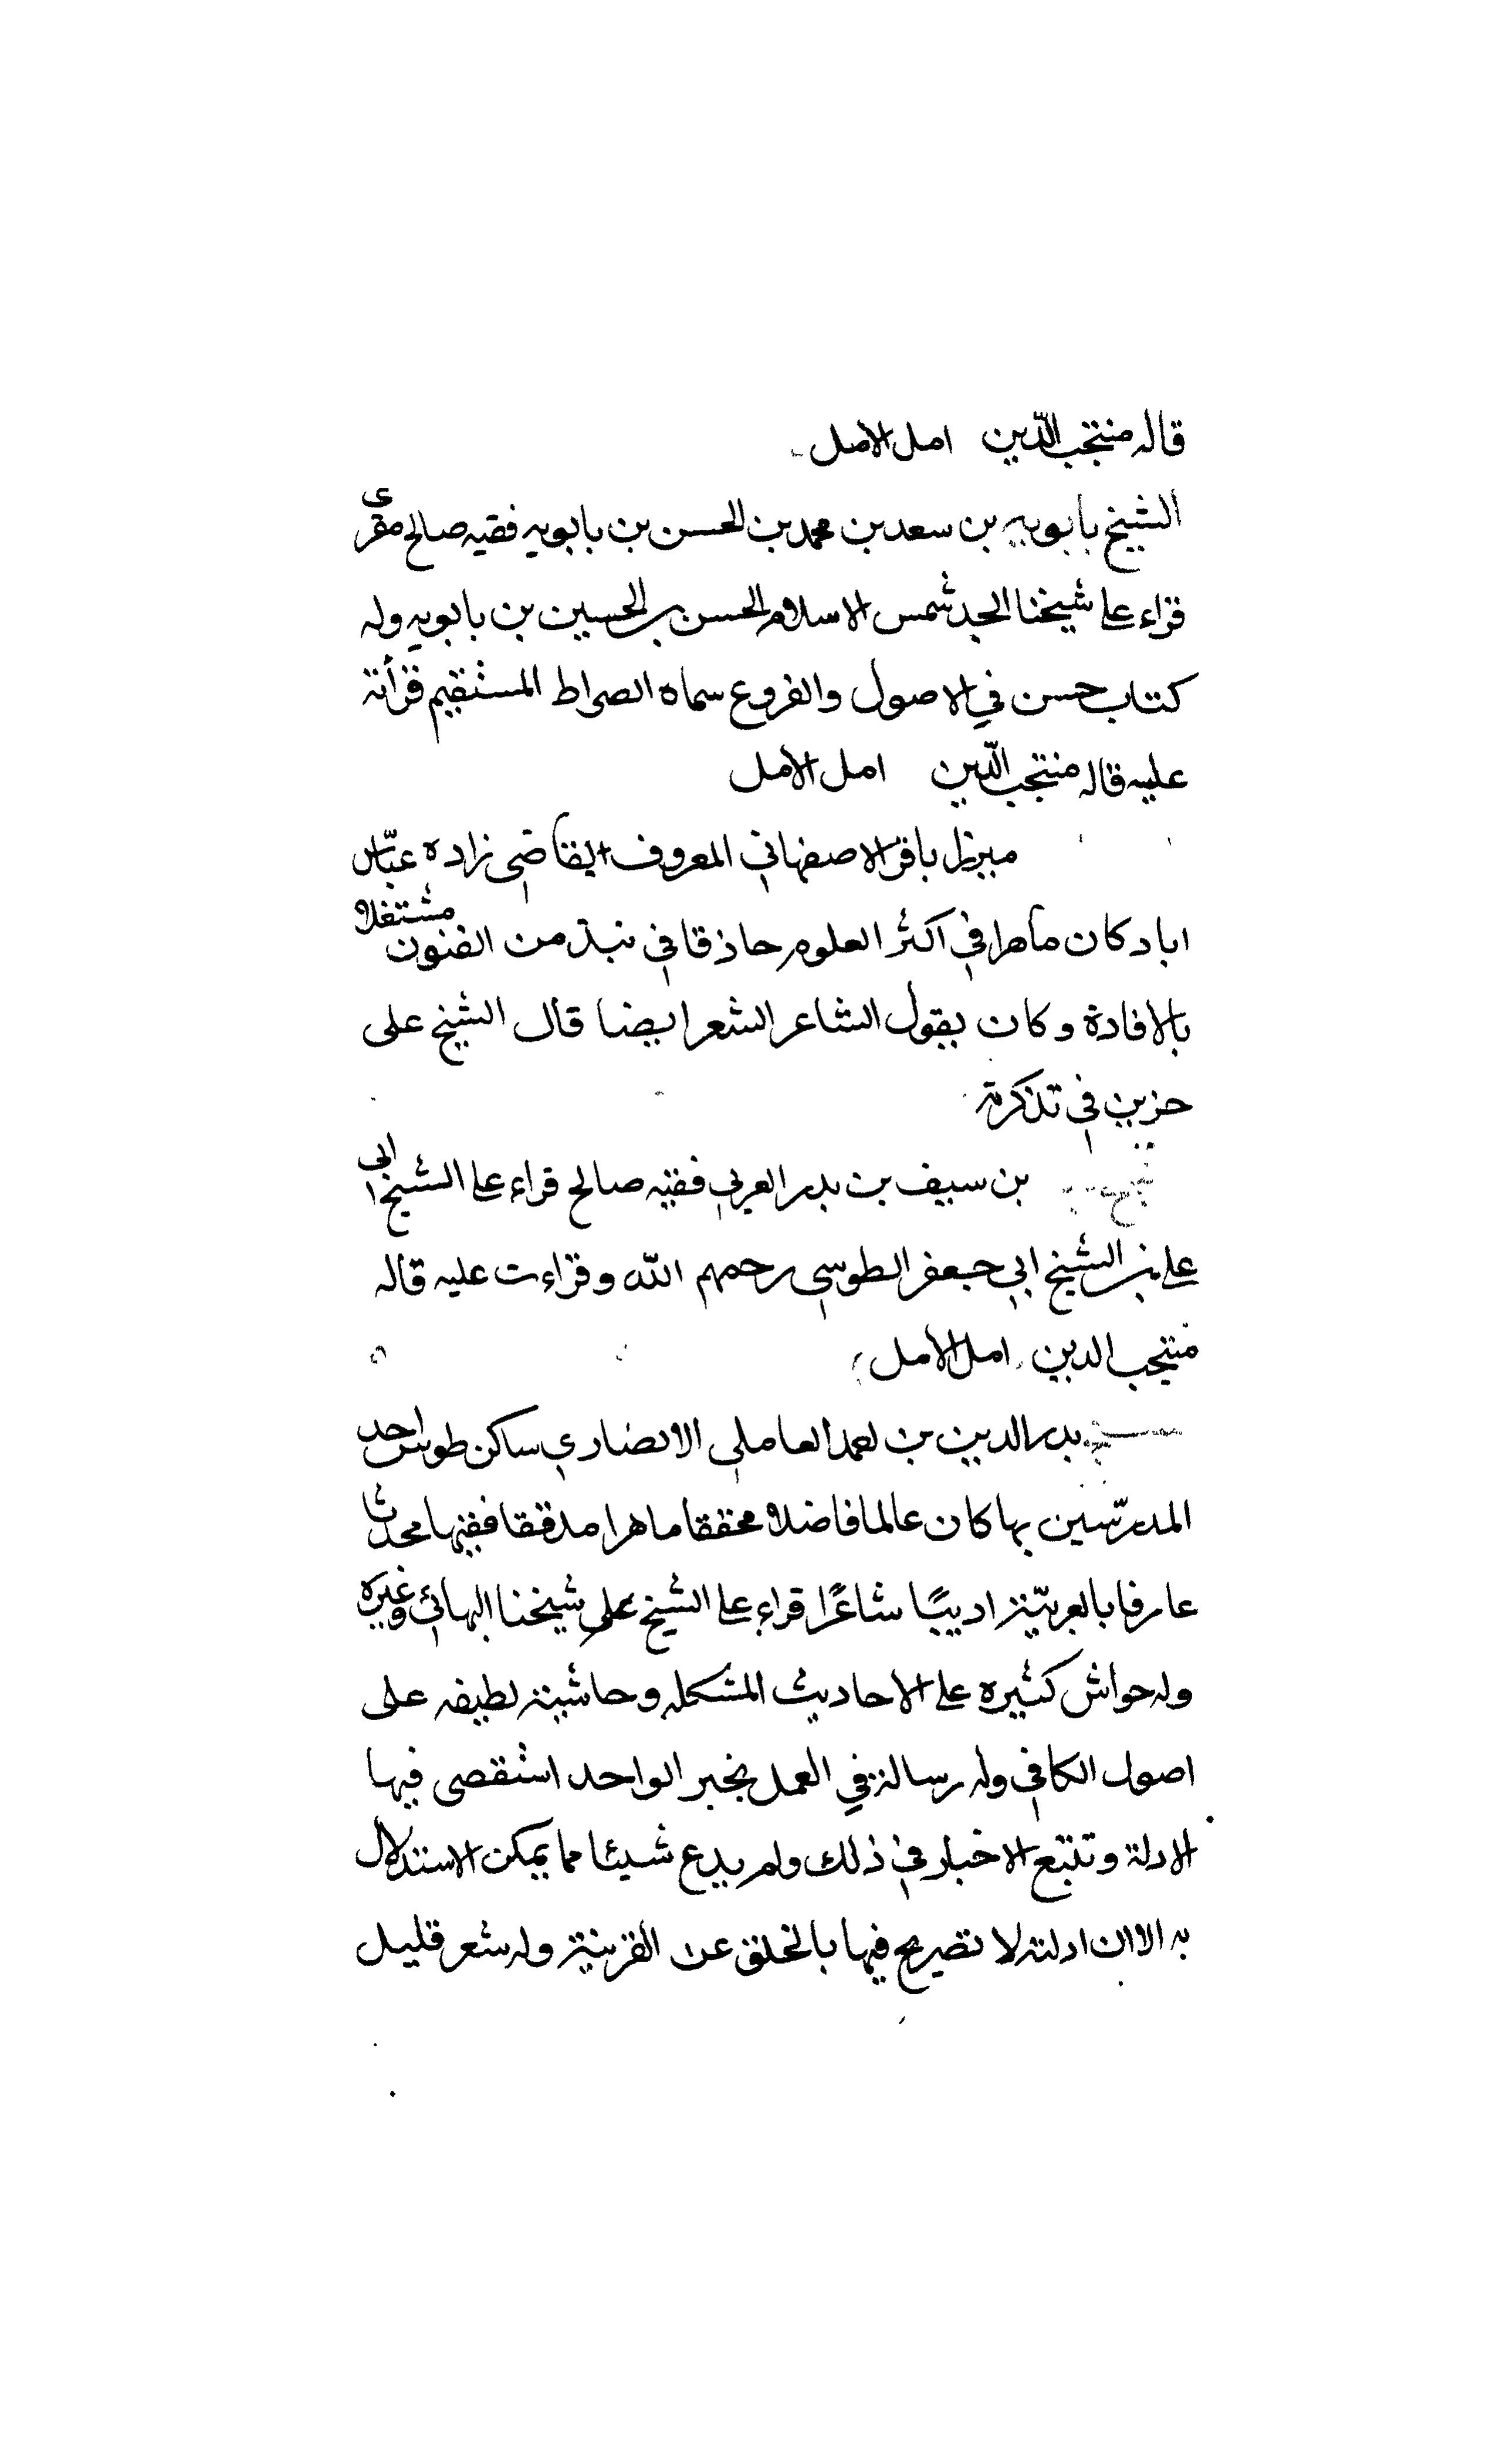 قاله منتجب الدّين امل الامل
الشيخ بابويه بن سعد بن محمد بن الحسن بن بابويه فقيه صالح مقرى
قراء على شيخنا الجد شمس الاسلام الحسن بن الحسين بن بابويه وله
كتاب حسن في الاصول والفروع سماه الصراط المستقيم قرأته
عليه قاله منتجب الدّين امل الامل
ميرزا باقر الاصفهاني المعروف بقاضى زاده عبّاس
اباد كان ماهرا في اكثر العلوم حاذقا في نبذ من الفنون مشتغلا
بالافادة وكان يقول الشاعر الشعر ايضا قال الشيخ على
حزين في تذكرته
بن سيف بن بدر العربي فقيه صالح قراء على الشيخ ابى
على بن الشيخ ابي جعفر الطوسي رحمهم الله وقراءت عليه قاله
منتجب الدين امل الامل
بدر الدين بن احمد العاملي الانصاري ساكن طوس احد
المدرّسين بها كان عالما فاضلا محققا ماهرا مدققا فقيها محدثا
عارفا بالعربيّة اديبًا شاعرًا قراء على الشيخ على شيخنا البهائي وغيره
وله حواش كثيره على الاحاديث المشكله وحاشية لطيفه على
اصول الكافي وله رسالة في العمل بخبر الواحد استقصى فيها
الادلة وتتبع الاخبار في ذلك ولم يدع شيئا مما يمكن الاستدلال
به الا ان ادلته لا تصريح فيها بالخلق عن القرينة وله شعر قليل